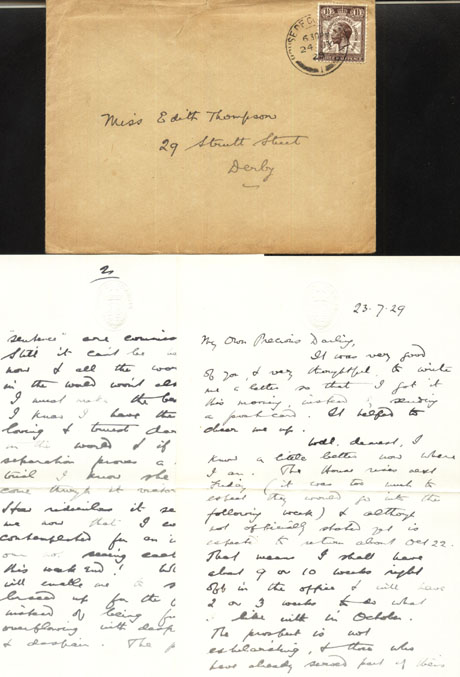 Miss Edith Thompson
29 Strutt Street
Derby
2
"sentence" are
Still it can't be
now & all the
in the world won't
I must make the
I know I have the
loving & truest
in the world & if
separation proves a
trial I know she
come through it
How ridiculous it
me now that I
contemplated for an
our not seeing each
this week End!
will enable me to
braced up for the
instead of being
overflowing with
& despair. The
23.7.29
My Own Precious Darling,
It was very good
of you & very thoughtful to write
me a letter so that I got it
this morning, instead of sending
a post card. It helped to
cheer me up.
Well, dearest, I
know a little better now where
I am. The House rises next
Friday (it was too much to
expect they would go into the
following week) & although
not officially stated yet is
expected to return about Oct 22.
That means I shall have
about 9 or 10 weeks right
off in the office & will have
2 or 3 weeks to do what
I like with in October.
The prospect is not
exhilarating, & those who
have already served part of their